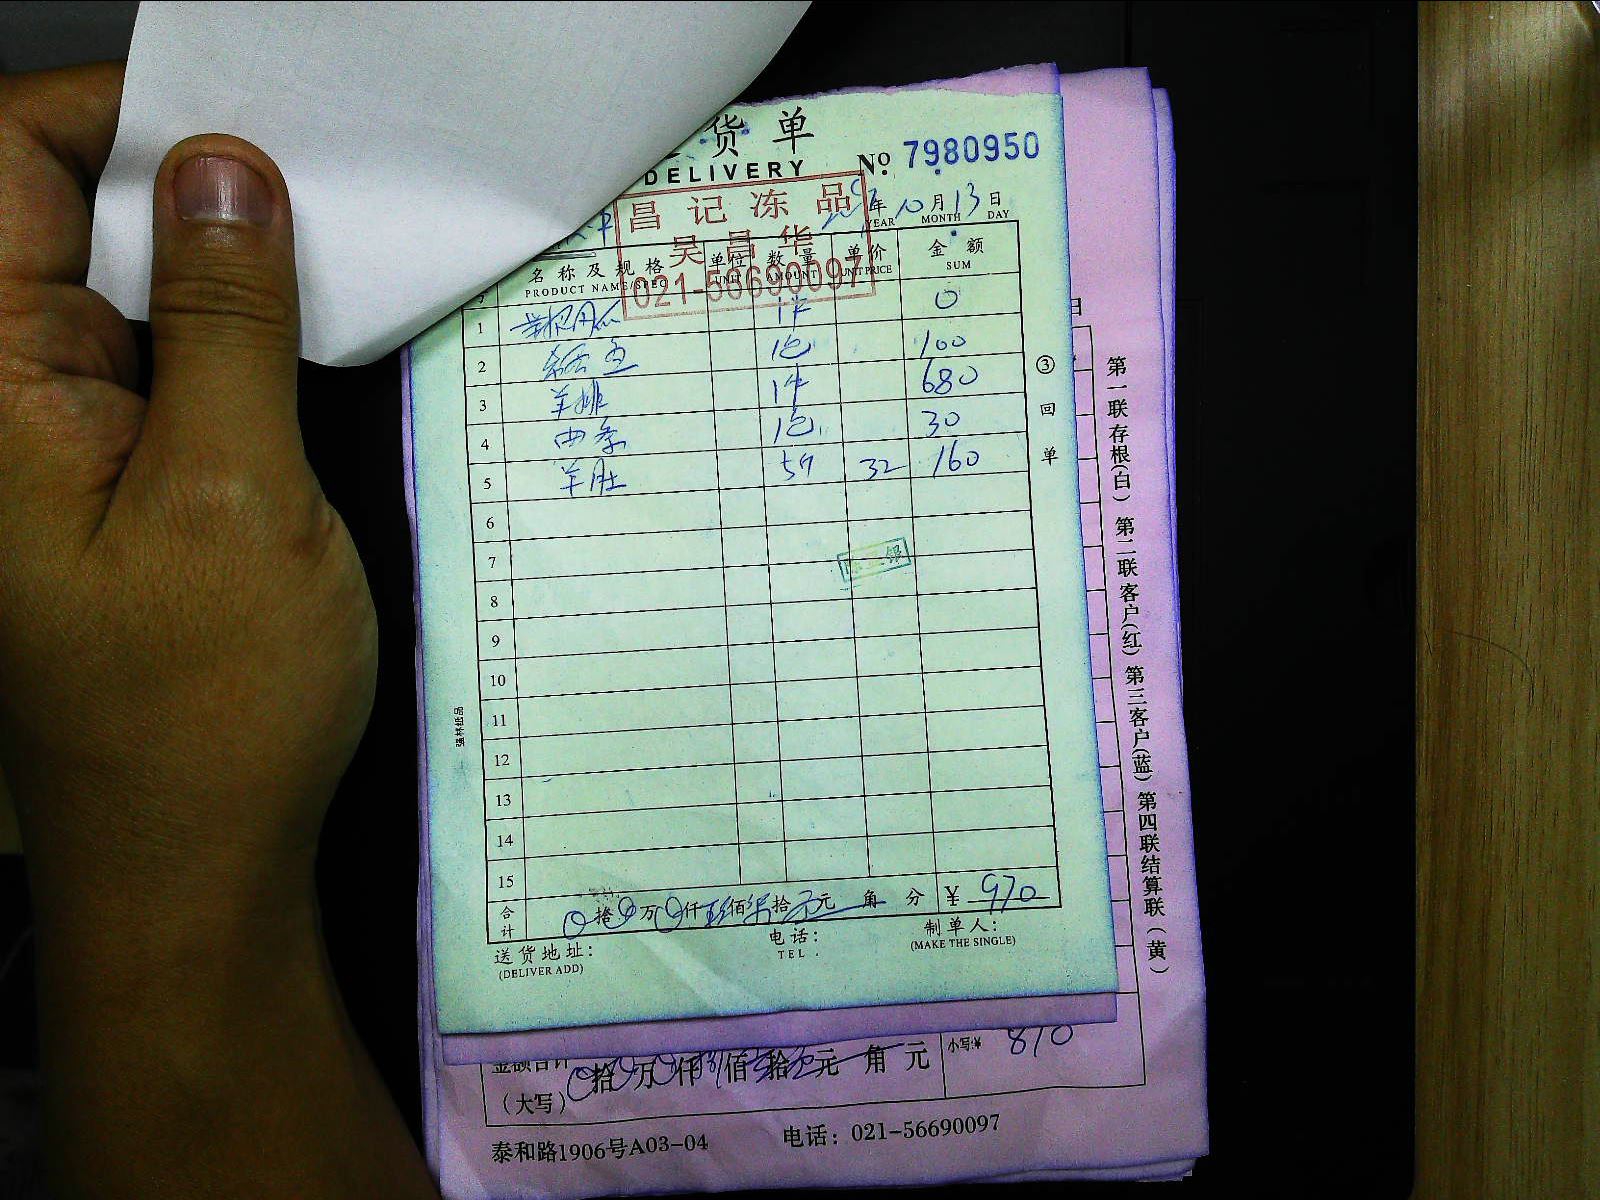 货单
DELIVERY
№ 7980950
昌记冻品
吴昌华
021-56690097
年 10 月 13 日
YEAR MONTH DAY
名称及规格 单位 数量 单价 金额
PRODUCT NAME/SPEC UNIT AMOUNT UNIT PRICE SUM
1 0
2 1包 100
3 羊排 1件 680
4 1包 30
5 羊肚 32 160
6
7
8
9
10
11
12
13
14
15
合计 0拾0万0仟玖佰柒拾元角分 ¥ 970
送货地址: 电话: 制单人:
(DELIVER ADD) TEL (MAKE THE SINGLE)
③回单
强林纸品
日
第一联存根(白) 第二联客户(红) 第三客户(蓝) 第四联结算联(黄)
金额合计 拾万仟佰拾元角元 小写:¥ 810
(大写)
泰和路1906号A03-04 电话: 021-56690097